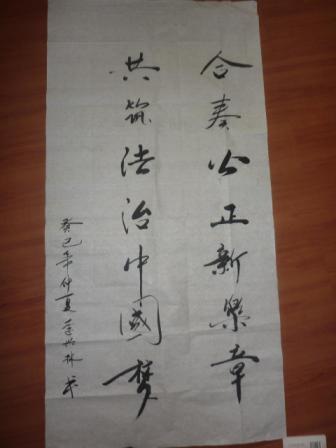 合奏公正新樂章
共筑法治中國梦
癸巳年仲夏 林